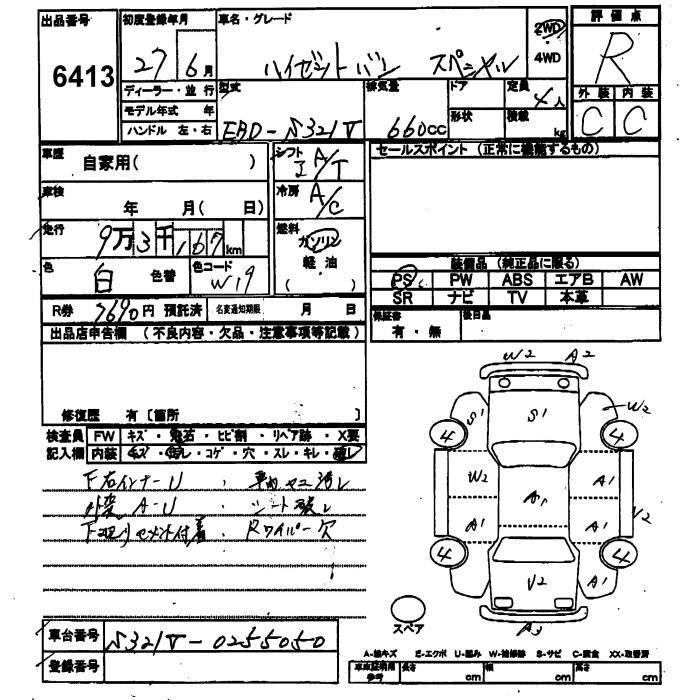 出品番号 初度登録年月 車名・グレード 評価点
6413 27 6月 ハイゼットバン スペシャル 2WD 4WD R
ディーラー・並行 型式 排気量 ドア 定員 4人 外装 内装
モデル年式 年 形状 積載 kg C C
ハンドル 左・右 EBD-S321V 660cc
車歴 自家用( ) シフト I A/T セールスポイント (正常に機能するもの)
車検 年 月( 日) 冷房 A/C
走行 9万3千167km 燃料 ガソリン 軽油 ( )
色 白 色替 色コード W19
装備品 (純正品に限る)
PS PW ABS エアB AW
SR ナビ TV 本革
R券 7690円 預託済 名変通知期限 月 日 保証書 有・無 後日品
出品店申告欄 (不良内容・欠品・注意事項等記載)
修復歴 有〔箇所 〕
検査員 FW キズ・飛石・ヒビ割・リペア跡・X要
記入欄 内装 キズ・汚レ・コゲ・穴・スレ・キレ・破レ
F右インナーU、 車内ヤニ汚レ
外装 A-U、 シート破レ
セメント付着、 Rワイパー欠
W2 A2
S1 S1 W2
4 4
W2 A1 A1
A1 A1 V2
4 4
V2 A1
スペア A3
車台番号 S321V-0255050
登録番号
A-線キズ E-エクボ U-凹み W-補修跡 S-サビ C-腐食 XX-取替済
車庫証明用参考 長さ cm 幅 cm 高さ cm